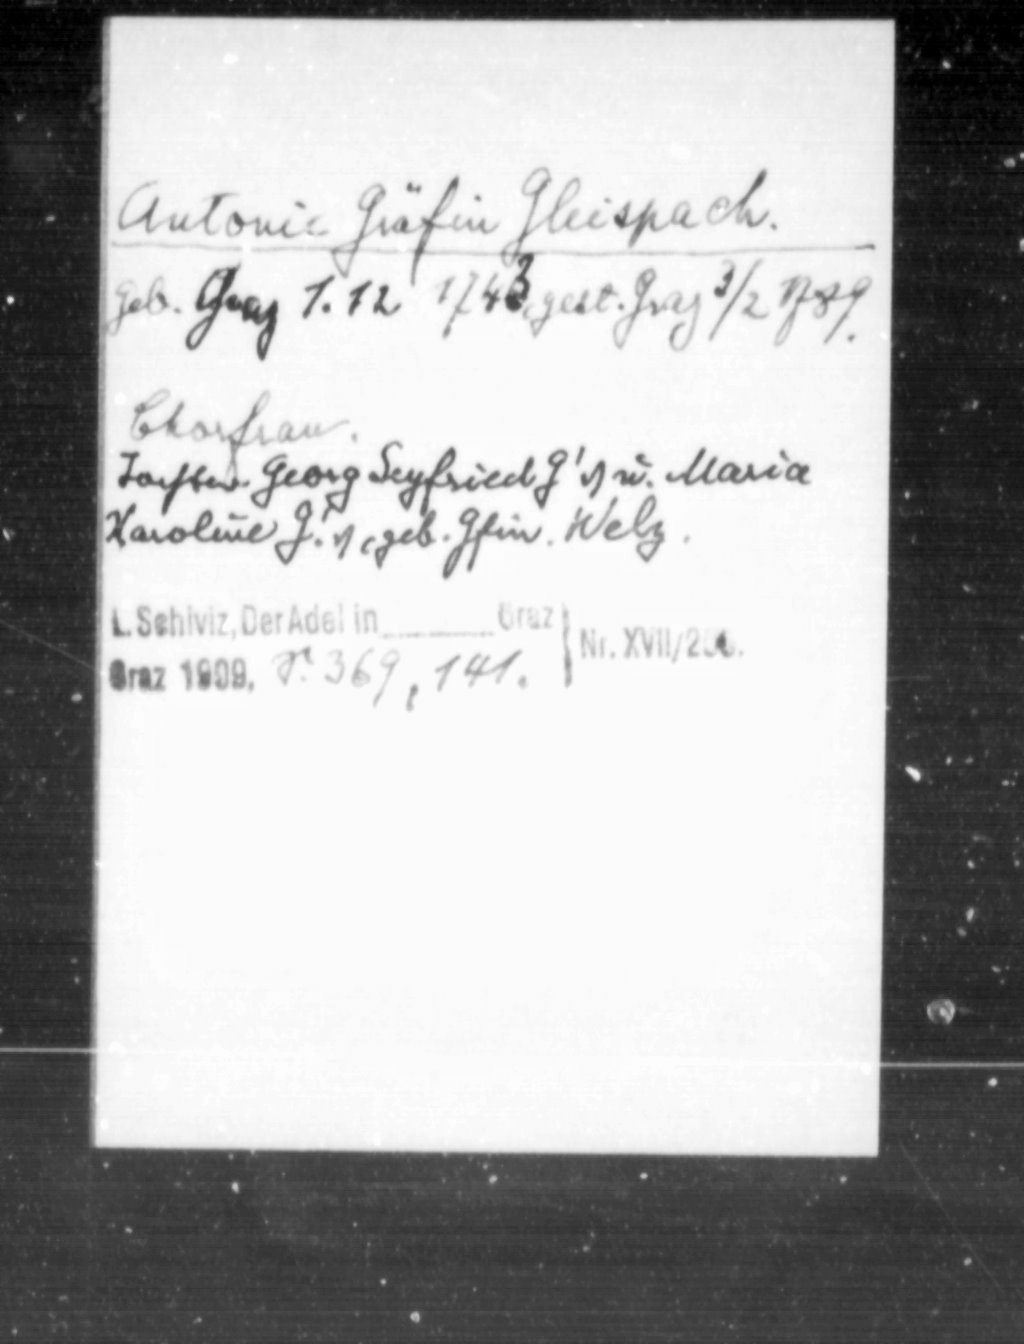 Antonie Gräfin Gleispach.
geb. Graz 1.12 1743, gest. Graz 3/2 1789.
Chorfrau.
Tochter Georg Seyfried G's u. Maria
Karoline G.'s, geb. Gfin. Welz.
L. Schiviz, Der Adel in ______ Graz
Graz 1909, S. 369, 141.
Nr. XVII/